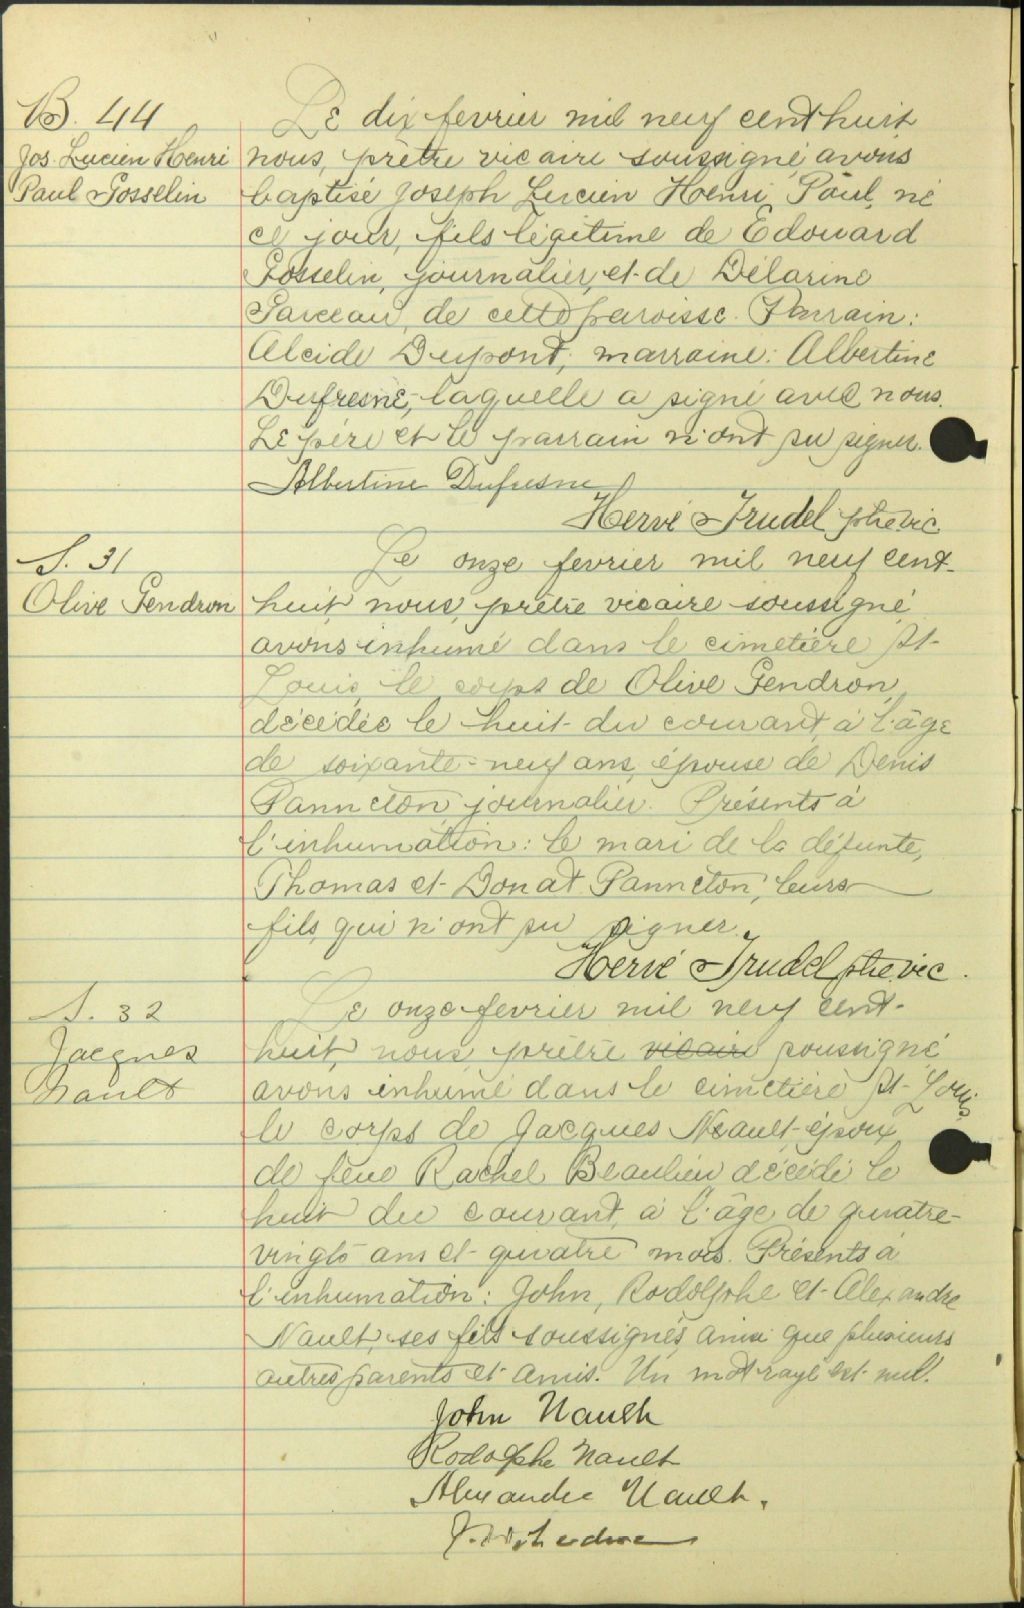 B. 44
Jos. Lucien Henri
Paul Gosselin
Le dix fevrier mil neuf cent huit
nous, prêtre vicaire soussigné avons
baptisé Joseph Lucien Henri Paul, né
ce jour, fils légitime de Edouard
Gosselin, journalier, et de Délarine
Garceau, de cette paroisse. Parrain:
Alcide Dupont; marraine: Albertine
Dufresne, laquelle a signé avec nous.
Le père et le parrain n'ont su signer.
Albertine Dufresne
Hervé Trudel ptre vic
S. 31
Olive Gendron
Le onze fevrier mil neuf cent-
huit, nous, prêtre vicaire soussigné
avons inhumé dans le cimetière St-
Louis, le corps de Olive Gendron,
décédée le huit du courant, à l'âge
de soixante-neuf ans, épouse de Denis
Panneton, journalier. Présents à
l'inhumation: le mari de la défunte,
Thomas et Donat Panneton, leurs
fils, qui n'ont su signer.
Hervé Trudel ptre vic.
S. 32
Jacques
Nault
Le onze fevrier mil neuf cent-
huit, nous, prêtre vicaire soussigné
avons inhumé dans le cimetière St-Louis,
le corps de Jacques Nault époux
de feue Rachel Beaulieu décédé le
huit du courant, à l'âge de quatre-
vingts ans et quatre mois. Présents à
l'inhumation: John, Rodolphe et Alexandre
Nault, ses fils soussignés ainsi que plusieurs
autres parents et amis. Un mot rayé est nul.
John Nault
Rodolphe Nault
Alexandre Nault.